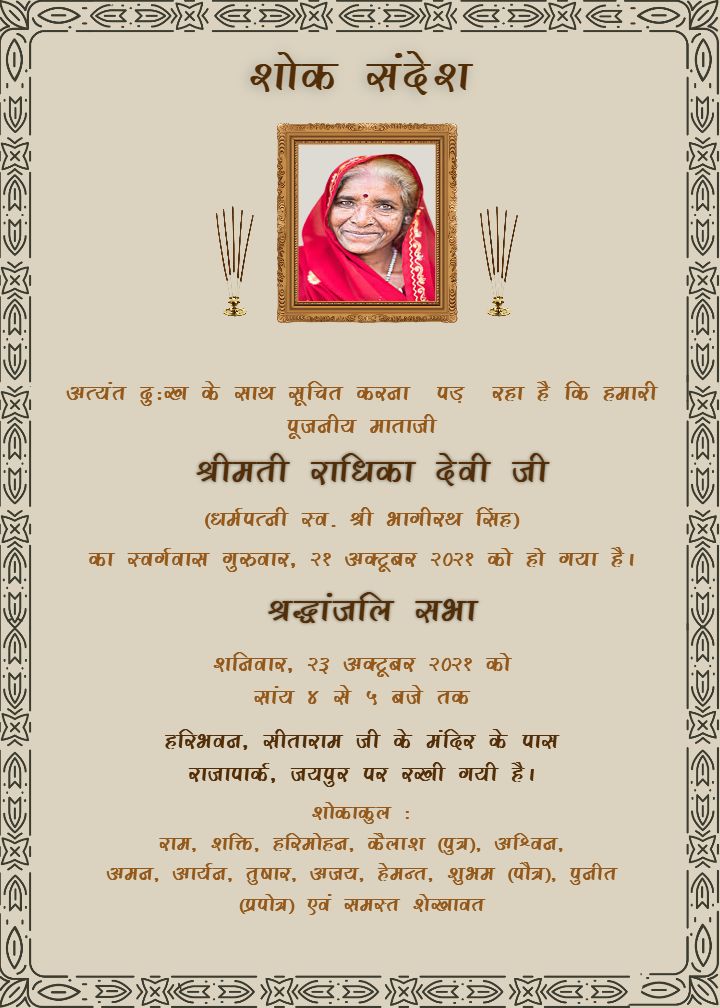 शोक संदेश
अत्यंत दुःख के साथ सूचित करना पड़ रहा है कि हमारी
पूजनीय माताजी
श्रीमती राधिका देवी जी
(धर्मपत्नी स्व. श्री भागीरथ सिंह)
का स्वर्गवास गुरुवार, २१ अक्टूबर २०२१ को हो गया है।
श्रद्धांजलि सभा
शनिवार, २३ अक्टूबर २०२१ को
सांय ४ से ५ बजे तक
हरिभवन, सीताराम जी के मंदिर के पास
राजापार्क, जयपुर पर रखी गयी है।
शोकाकुल :
राम, शक्ति, हरिमोहन, कैलाश (पुत्र), अश्विन,
अमन, आर्यन, तुषार, अजय, हेमन्त, शुभम (पौत्र), पुनीत
(प्रपोत्र) एवं समस्त शेखावत